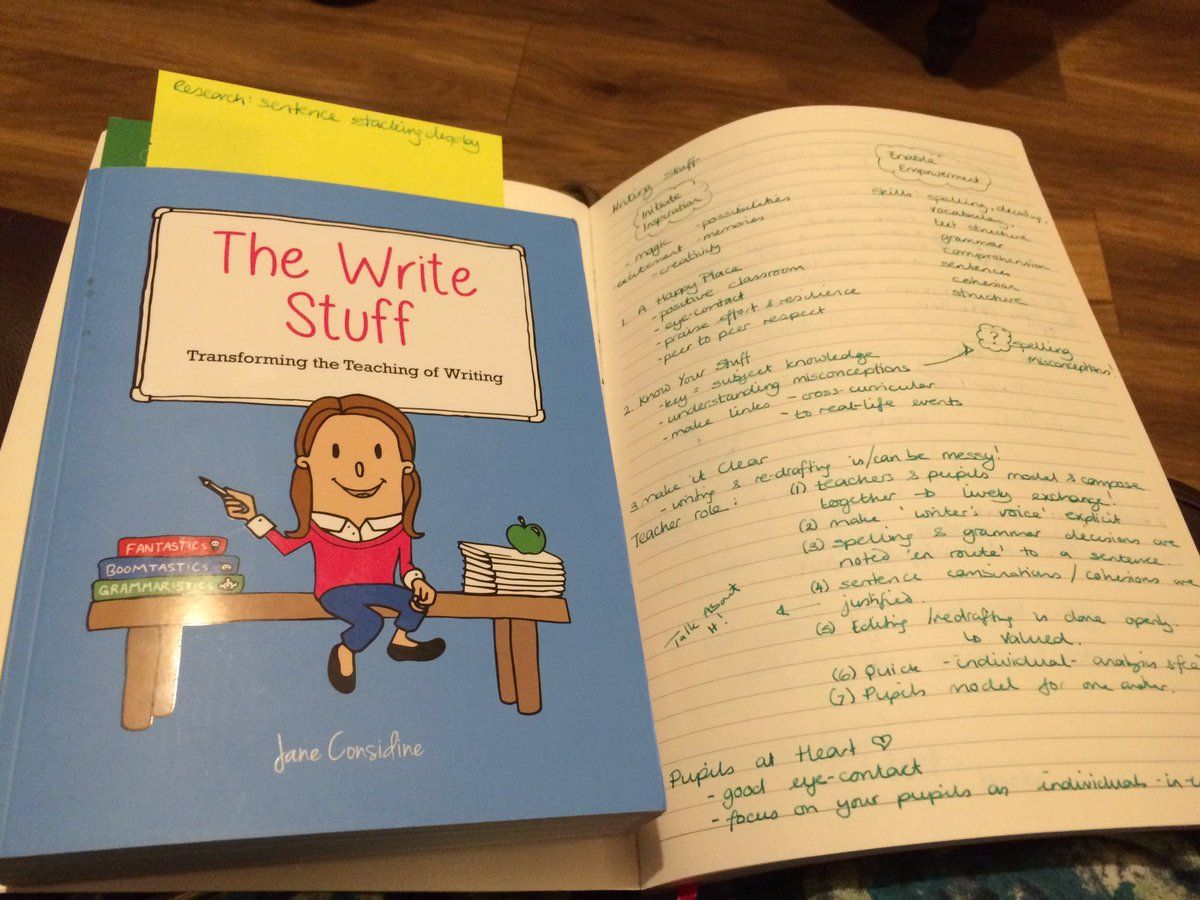 Research: sentence stacking display
The Write
Stuff
Transforming the Teaching of Writing
FANTASTICS
BOOMTASTICS
GRAMMARISTICS
Jane Considine
Writing Stuff
Initiate
Inspiration
- magic - possibilities
- excitement - memories
- creativity
Enable
Empowerment
Skills: spelling, decoding,
vocabulary,
text structure
grammar
comprehension
sentences
cohesion
structure
1. A Happy Place
- positive classroom
- eye-contact
- praise effort & resilience
- peer to peer respect
2. Know Your Stuff
- key = subject knowledge
- understanding misconceptions
- make links - cross-curricular
- to real-life events
?
spelling
misconceptions!
3. Make it Clear
- writing & re-drafting is/can be messy!
Teacher role:
(1) teachers & pupils model & compose
together → lively exchange!
(2) make 'writer's voice' explicit
(3) spelling & grammar decisions are
noted 'en route' to a sentence.
(4) sentence combinations / cohesions are
justified.
Talk About
it!
(5) Editing / redrafting is done openly.
↳ valued.
(6) Quick - individual - analysis
(7) Pupils model for one another.
Pupils at Heart ♡
- good eye-contact
- focus on your pupils as individuals